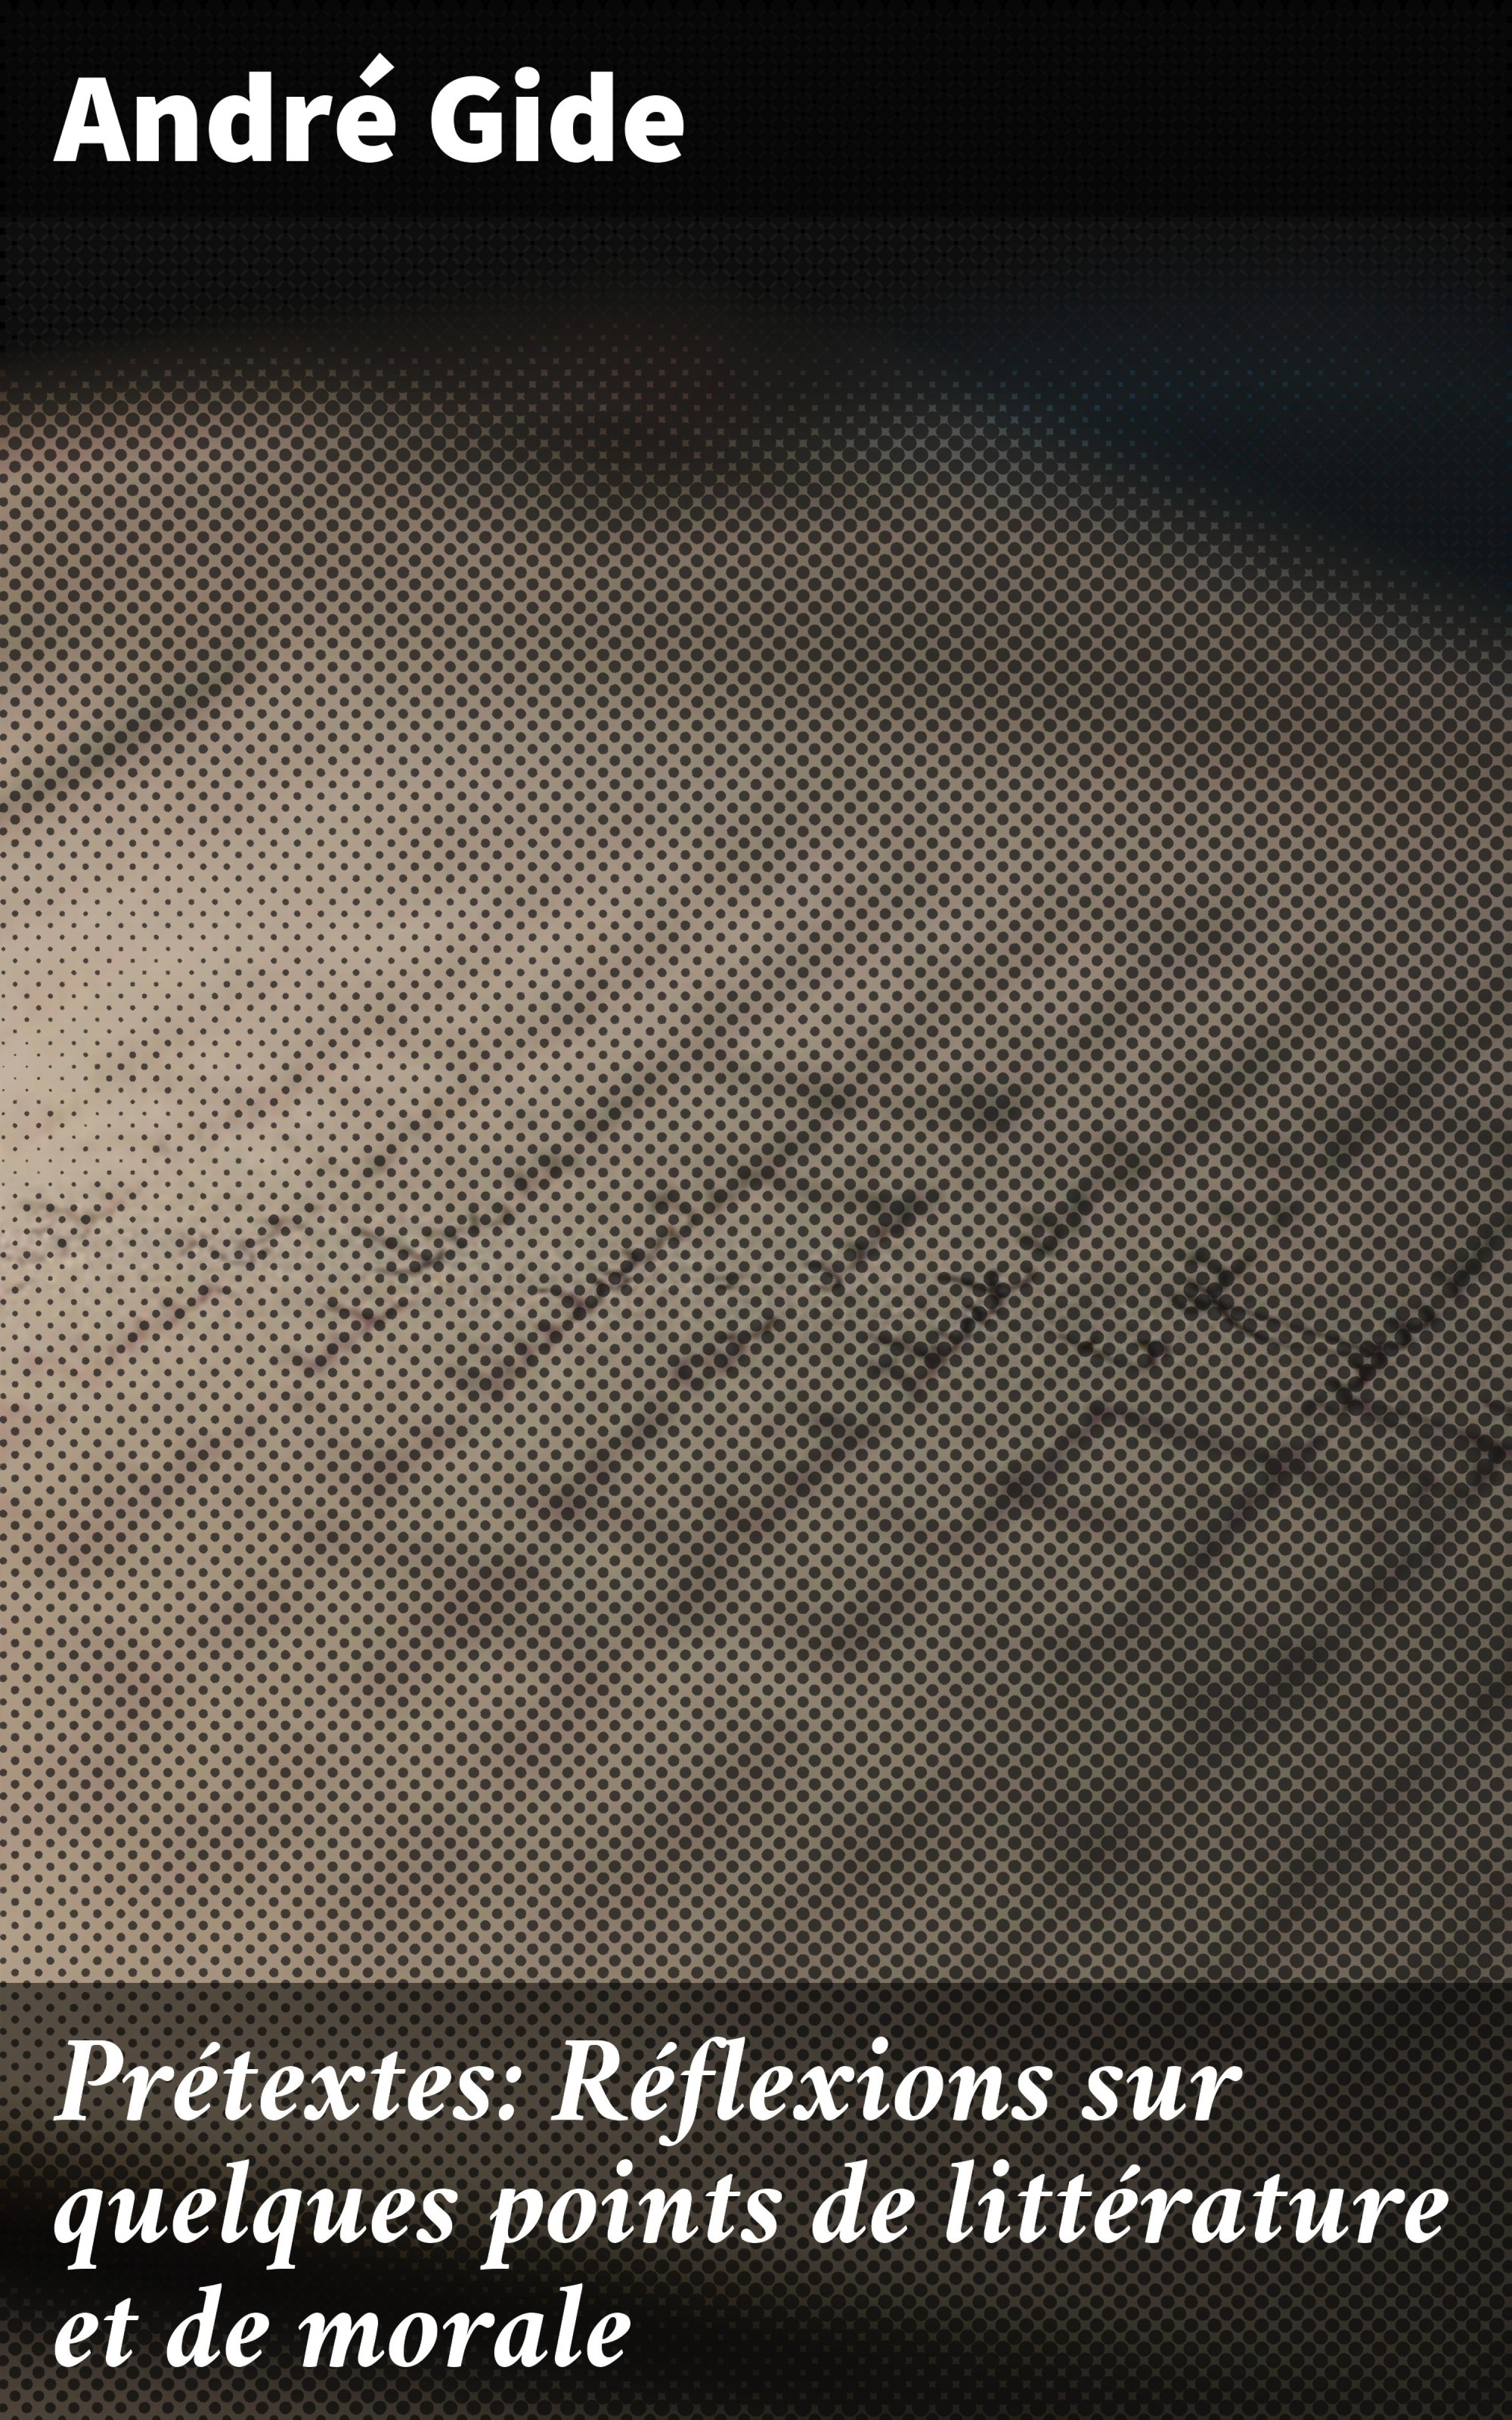 André Gide
Prétextes: Réflexions sur
quelques points de littérature
et de morale